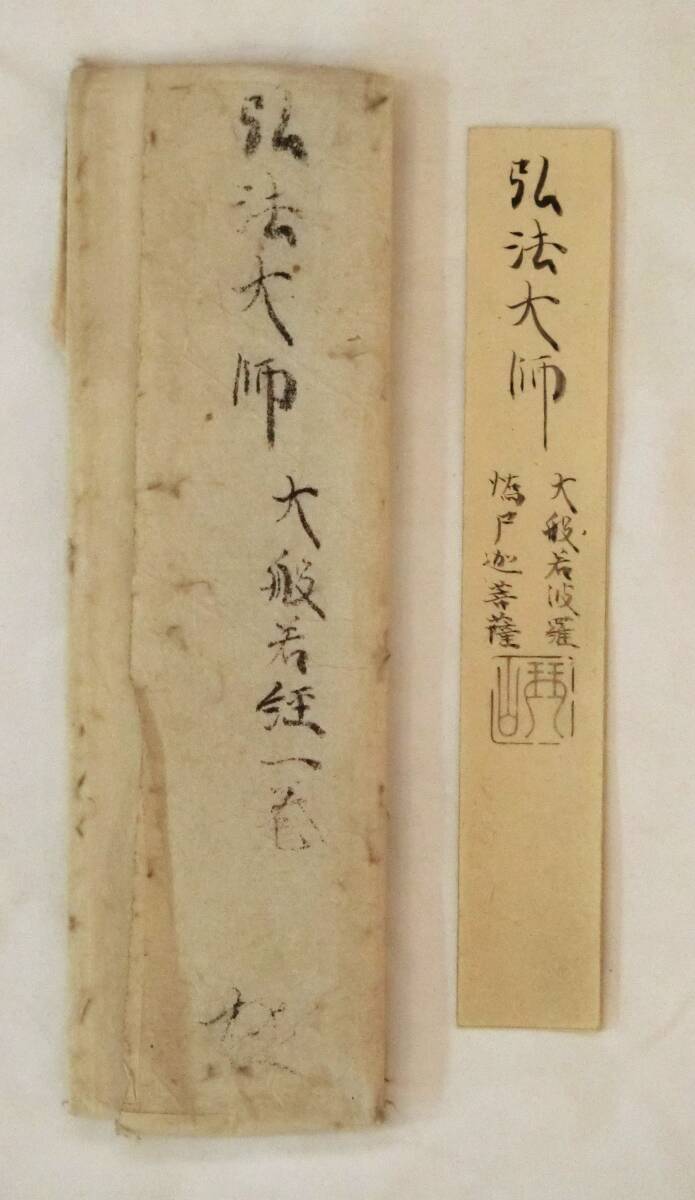 弘法大師
大般若波羅
憍尸迦菩薩
琴山
弘法大師
大般若経一巻